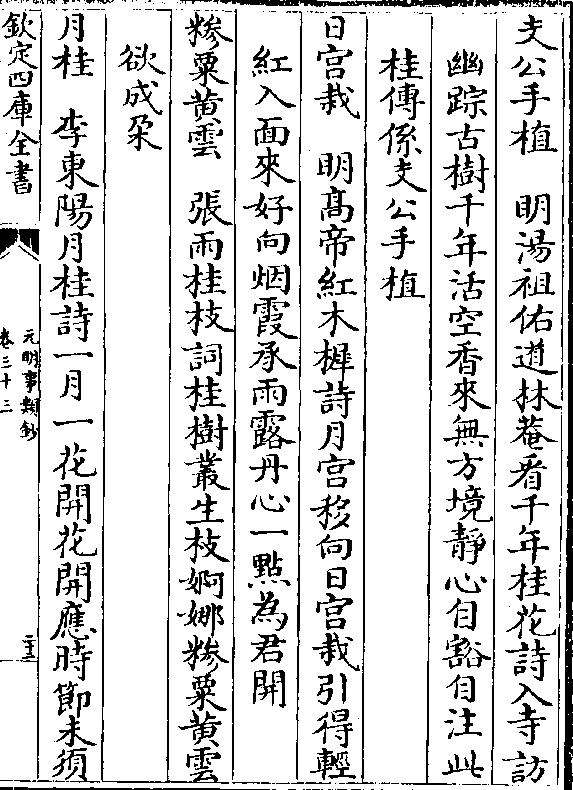 支公手植　明湯祖佑道林菴看千年桂花詩入寺訪
幽踪古樹千年活空香來無方境靜心自豁自注此
桂傳係支公手植
日宫栽　明髙帝紅木樨詩月宫移向日宫栽引得輕
紅入面來好向烟霞承雨露丹心一點為君開
糝粟黄雲　張雨桂枝詞桂樹叢生枝婀娜糝粟黄雲
欲成朶
月桂　李東陽月桂詩一月一花開花開應時節未須
欽定四庫全書
元明事類鈔
卷三十三